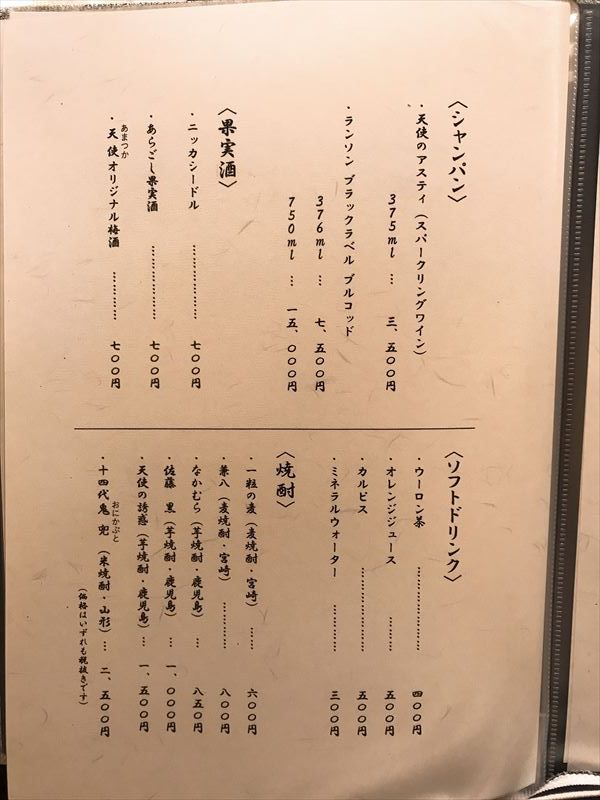 〈シャンパン〉
・天使のアスティ（スパークリングワイン）
375ml … 三、五〇〇円
・ランソン ブラックラベル ブルコッド
376ml … 七、五〇〇円
750ml … 一五、〇〇〇円
〈果実酒〉
・ニッカシードル ………… 七〇〇円
・あらごし果実酒 ………… 七〇〇円
あまつか
・天使オリジナル梅酒 ………… 七〇〇円
〈ソフトドリンク〉
・ウーロン茶 ………… 四〇〇円
・オレンジジュース ………… 五〇〇円
・カルピス ………… 五〇〇円
・ミネラルウォーター ………… 三〇〇円
〈焼酎〉
・一粒の麦（麦焼酎・宮崎） …… 六〇〇円
・兼八（麦焼酎・宮崎） ………… 八〇〇円
・なかむら（芋焼酎・鹿児島） … 八五〇円
・佐藤 黒（芋焼酎・鹿児島） … 一、〇〇〇円
・天使の誘惑（芋焼酎・鹿児島） … 一、五〇〇円
おにかぶと
・十四代鬼 兜（米焼酎・山形） … 二、五〇〇円
（価格はいずれも税抜きです）